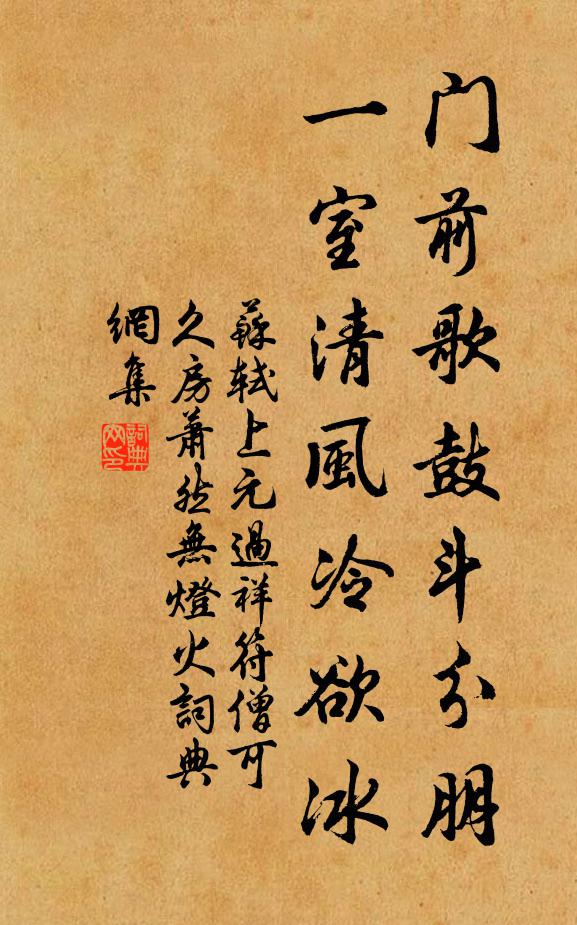 门前歌鼓斗分朋
一室清風冷欲冰
蘇軾上元過祥符僧可
久房蕭然無燈火詞典
網集
詞典
网印